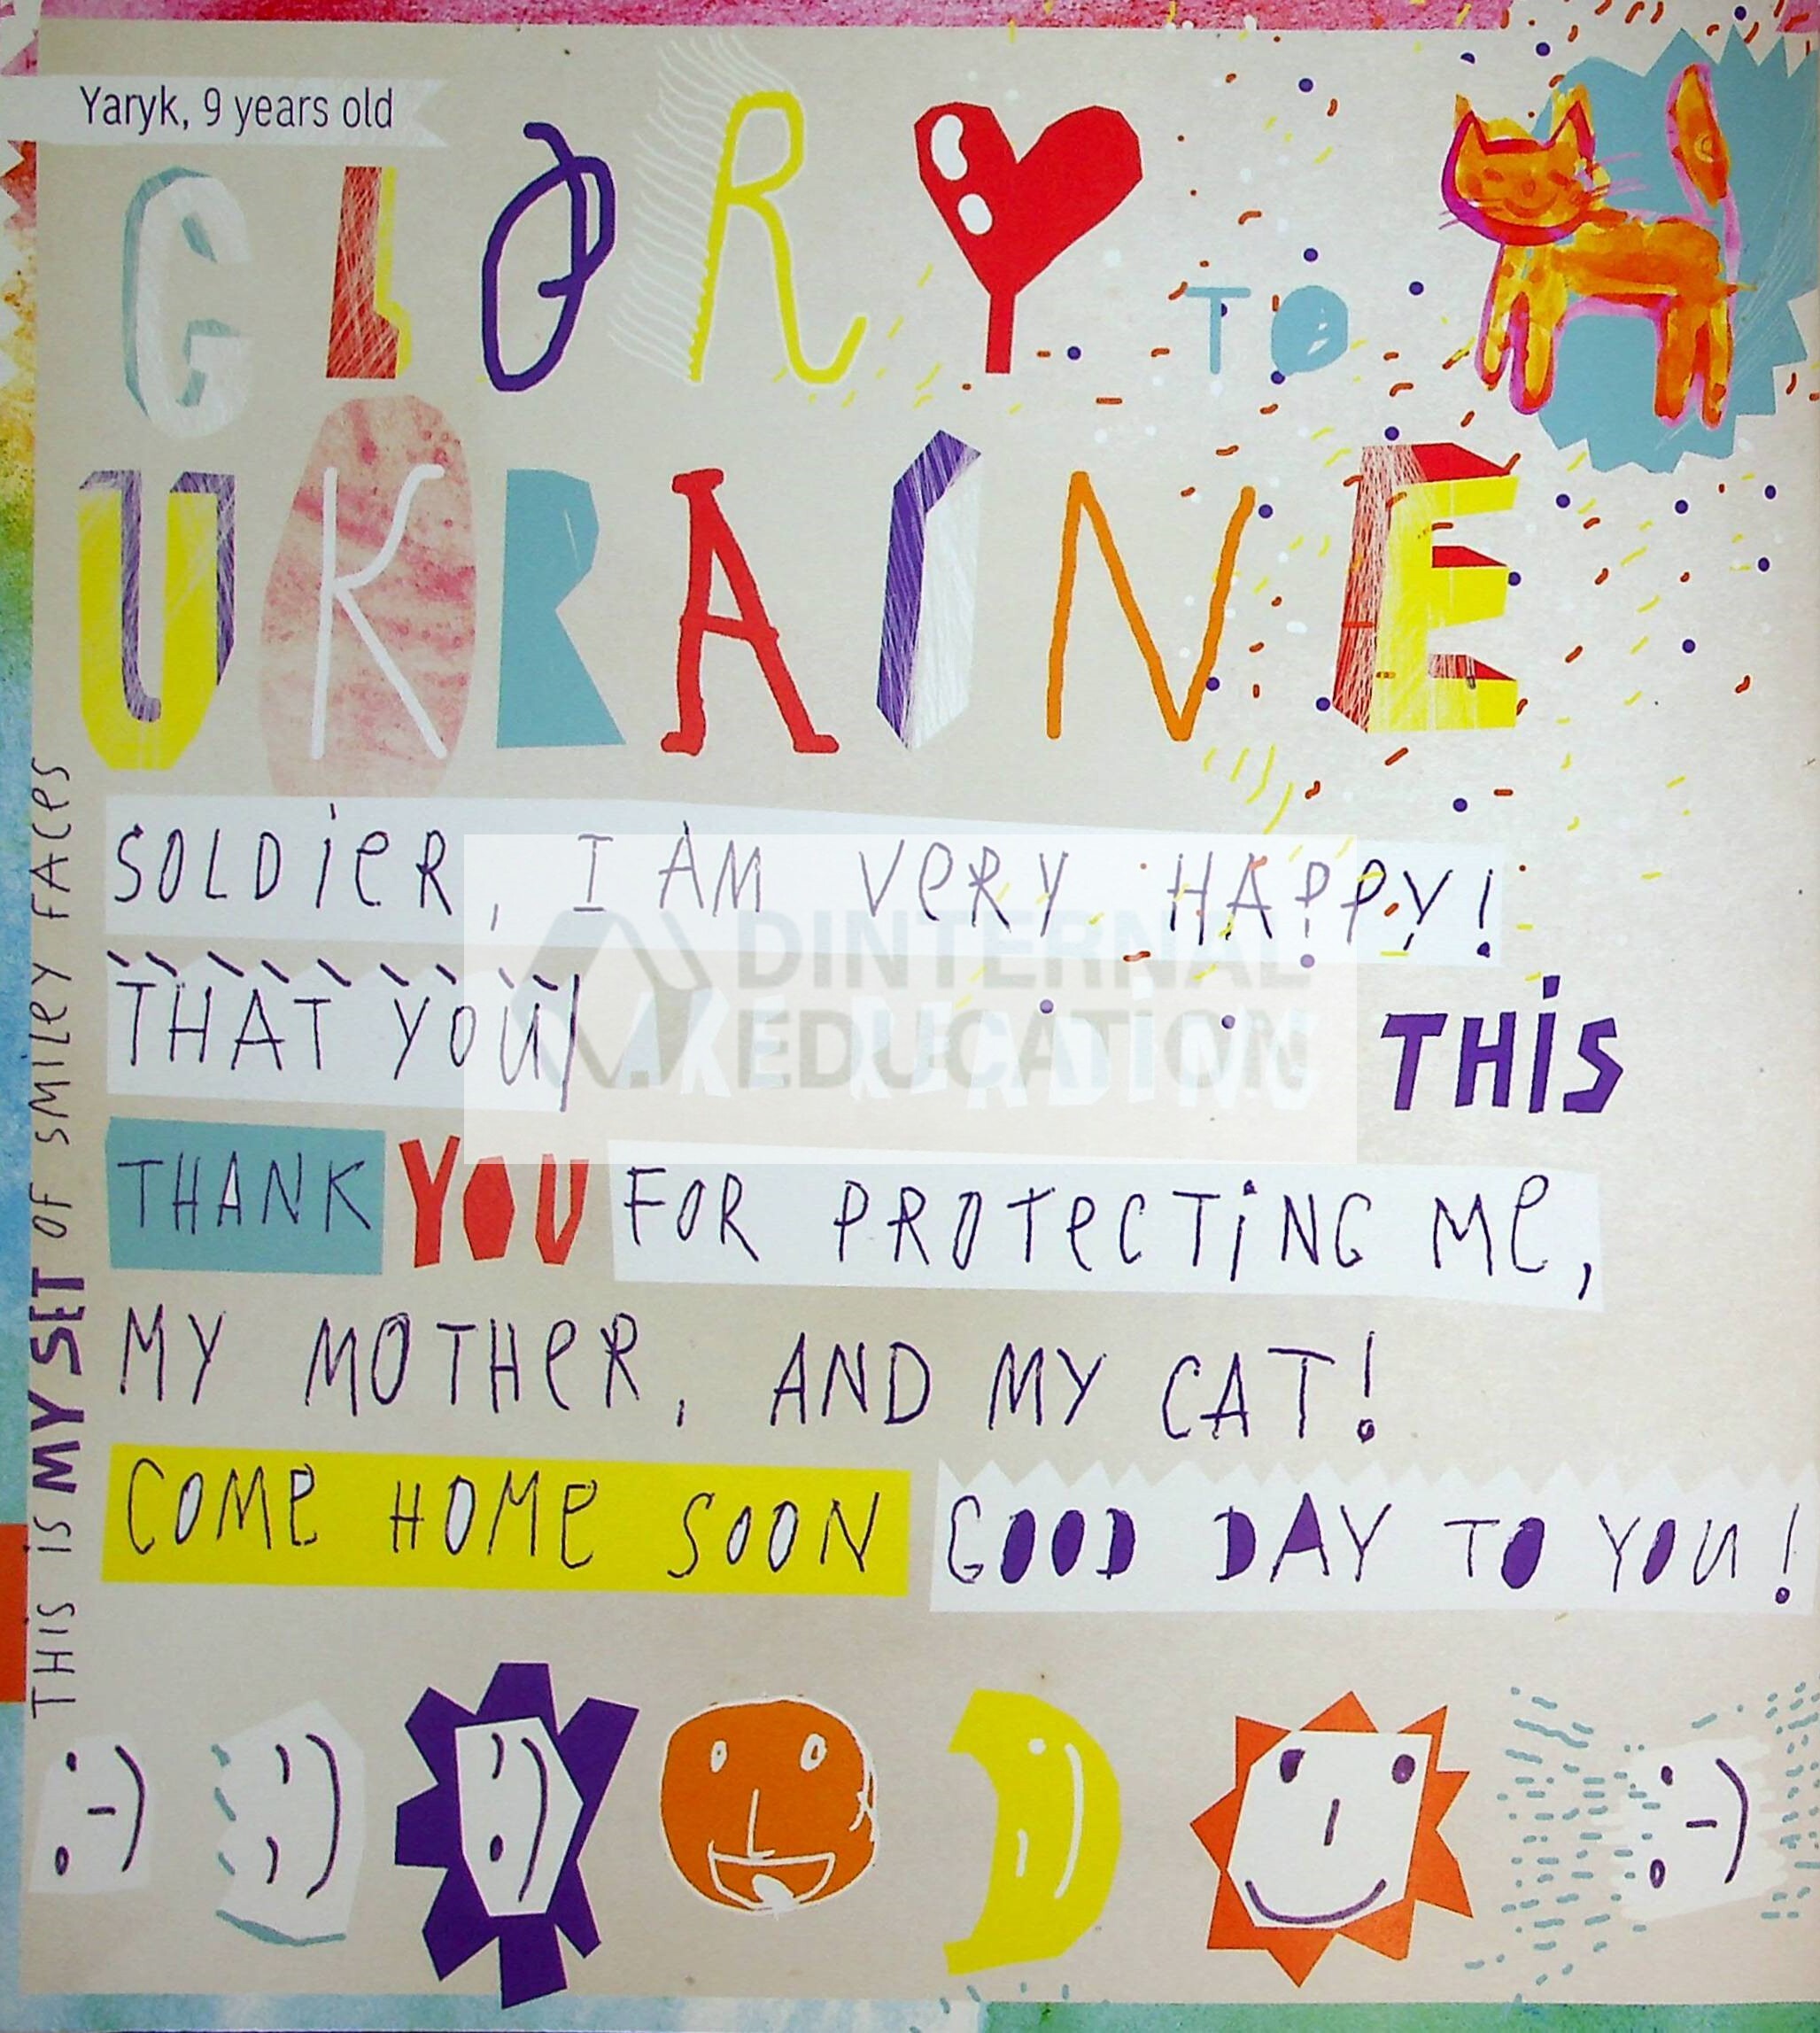 Yaryk, 9 years old
GLORY TO
UKRAINE
SOLDieR, I AM VeRY HAPPY!
THAT YOU ARE READING THIS
THANK YOU FOR PROTeCTiNG Me,
MY MOTHeR, AND MY CAT!
COMe HOMe SOON GOOD DAY TO YOU!
THIS iS MY SET OF SMILeY FACeS
:-)
:-)
DINTERNAL
EDUCATION